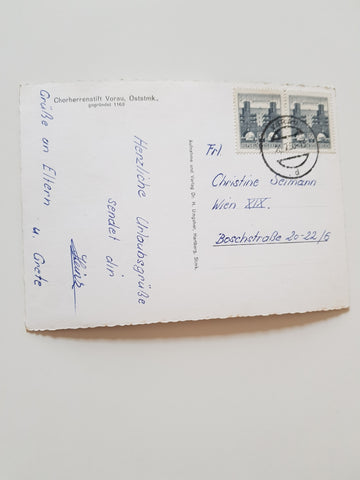 Chorherrenstift Vorau, Oststmk.,
gegründet 1163
Herzliche Urlaubsgrüße
sendet dir
Grüße an Eltern u. Grete
Aufnahme und Verlag Dr. H. Ungsher, Hartberg, Stmk.
Frl.
Christine Seimann
Wien XIX.
Boschstraße 20-22/5